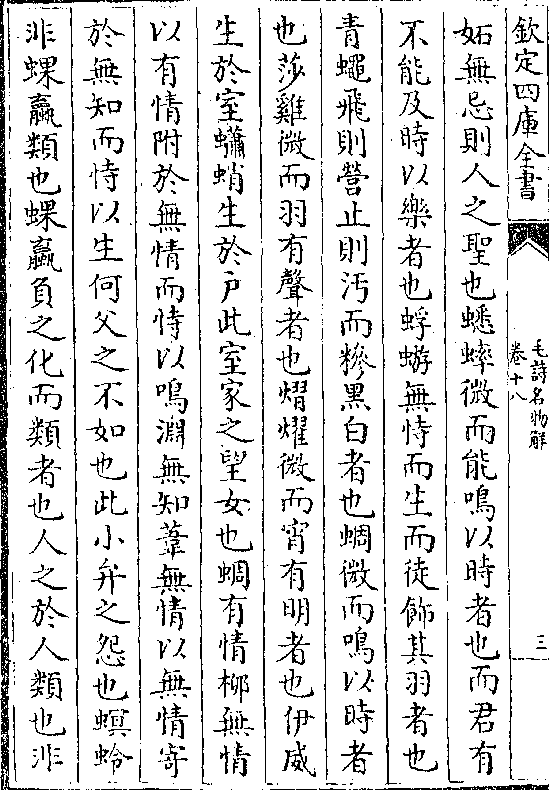 欽定四庫全書
毛詩名物解
卷十八
三
妬無忌則人之聖也蟋蟀微而能鳴以時者也而君有
不能及時以樂者也蜉蝣無恃而生而徒飾其羽者也
青蠅飛則營止則汚而糝黑白者也蜩微而鳴以時者
也莎雞微而羽有聲者也熠燿微而宵有明者也伊威
生於室蠨蛸生於戶此室家之望女也蜩有情柳無情
以有情附於無情而恃以鳴淵無知葦無情以無情寄
於無知而恃以生何父之不如也此小弁之怨也螟蛉
非蜾蠃類也蜾蠃負之化而類者也人之於人類也非